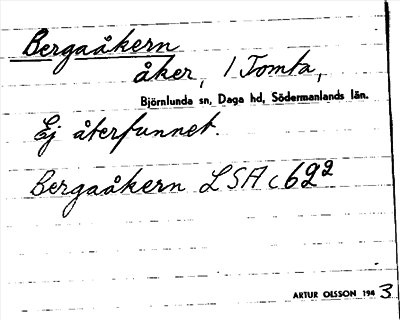 Bergaåkern
åker, 1 Tomta,
Björnlunda sn, Daga hd, Södermanlands län.
Ej återfunnet.
Bergaåkern LSA c 69²
ARTUR OLSSON 1943